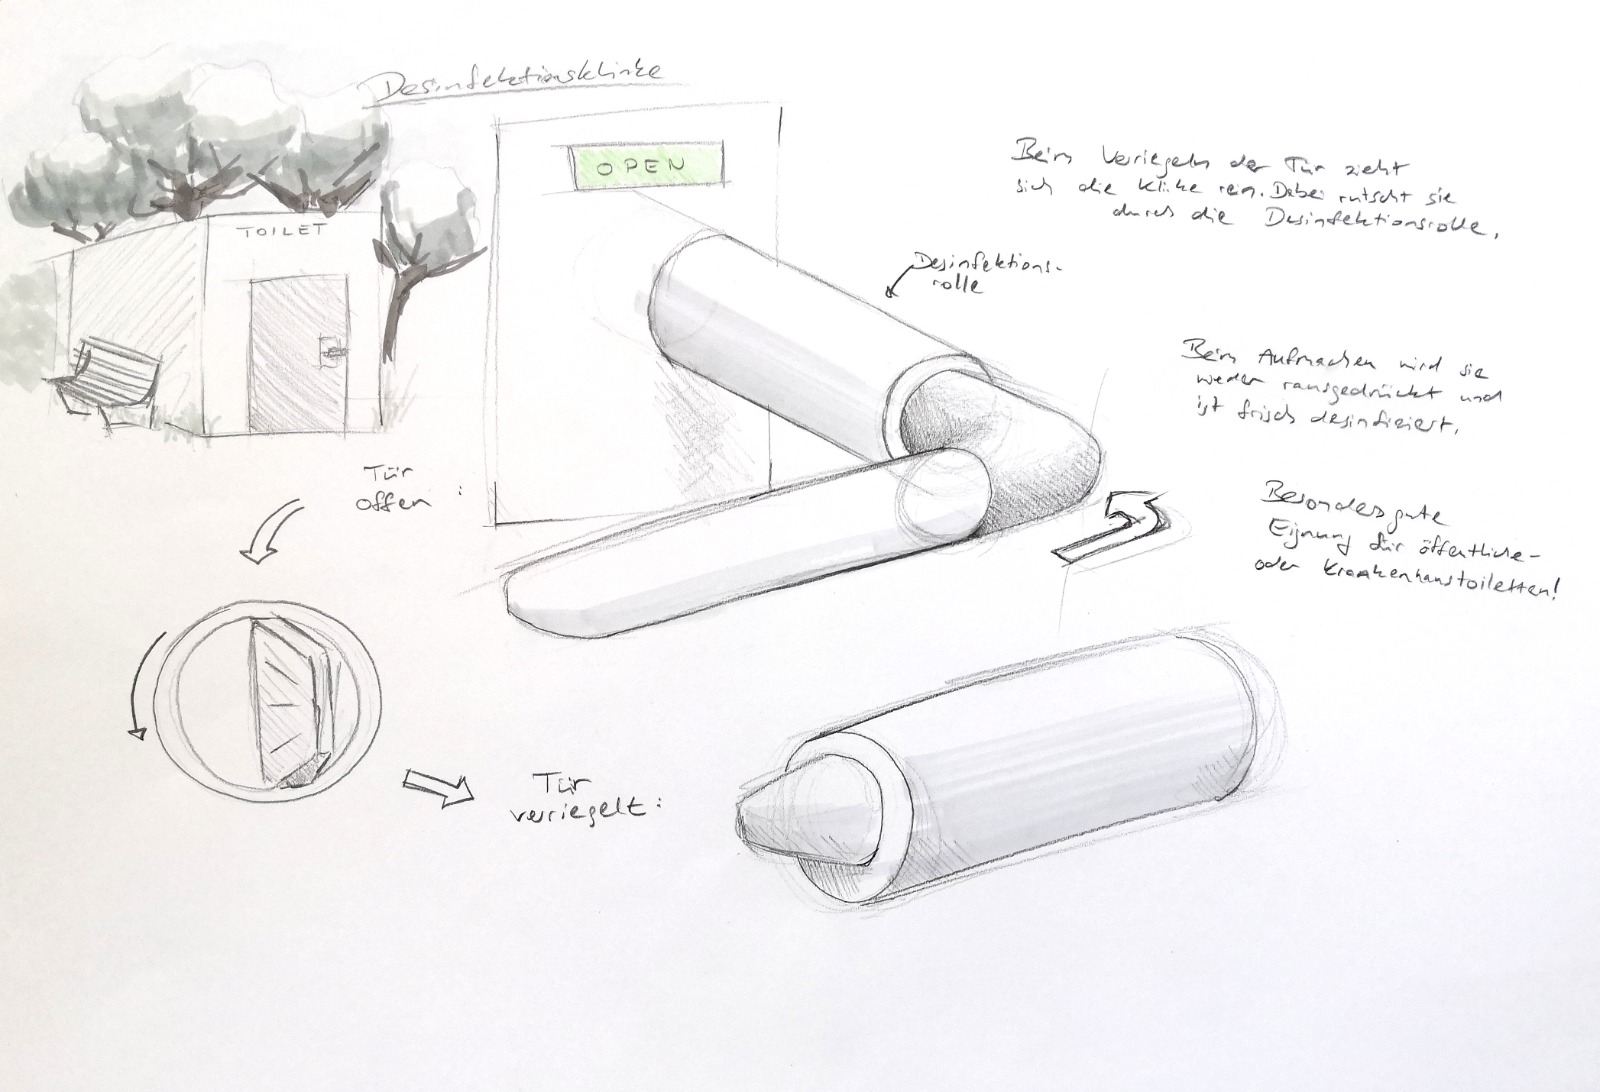 Desinfektionsklinke
OPEN
TOILET
Beim Verriegeln der Tür zieht
sich die Klinke rein. Dabei rutscht sie
durch die Desinfektionsrolle.
Desinfektions-
rolle
Beim Aufmachen wird sie
wieder rausgedrückt und
ist frisch desinfiziert.
Tür
offen :
Besonders gute
Eignung für öffentliche-
oder Krankenhaustoiletten!
Tür
verriegelt: